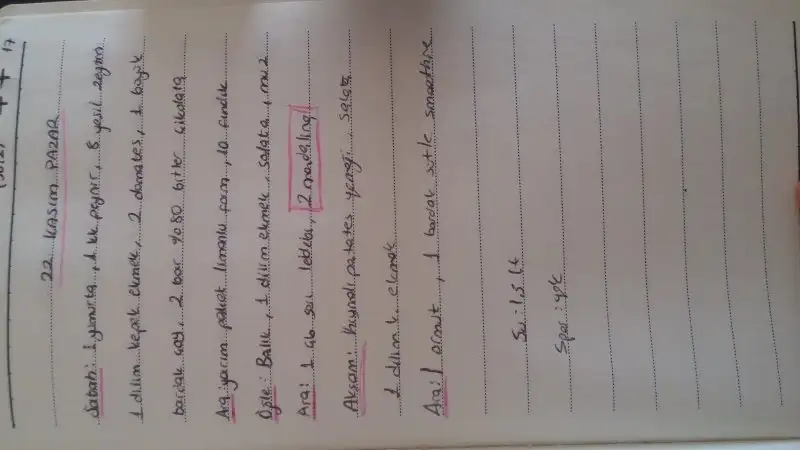 22 KASIM PAZAR
Sabah: 1 yumurta, 1 kk peynir, 8 yeşil zeytin
1 dilim kepek ekmek, 2 domates, 1 büyük
bardak çay, 2 bar %80 bitter çikolata
Ara: yarım paket limonlu form, 10 fındık
Öğle: Balık, 1 dilim ekmek, salata, muz
Ara: 1 çb sarı leblebi, 2 mandalina
Akşam: Kıymalı patates yemeği, salata
1 dilim k. ekmek
Ara: 1 armut, 1 bardak sütlü smoothie
Su: 1,5 Lt
Spor: yok